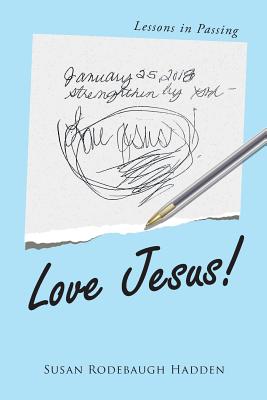 Lessons in Passing
January 25 2018
strengthen by
Love Jesus!
Love Jesus!
Susan Rodebaugh Hadden